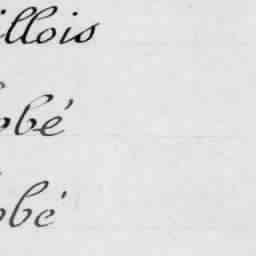 illois
obé
obé